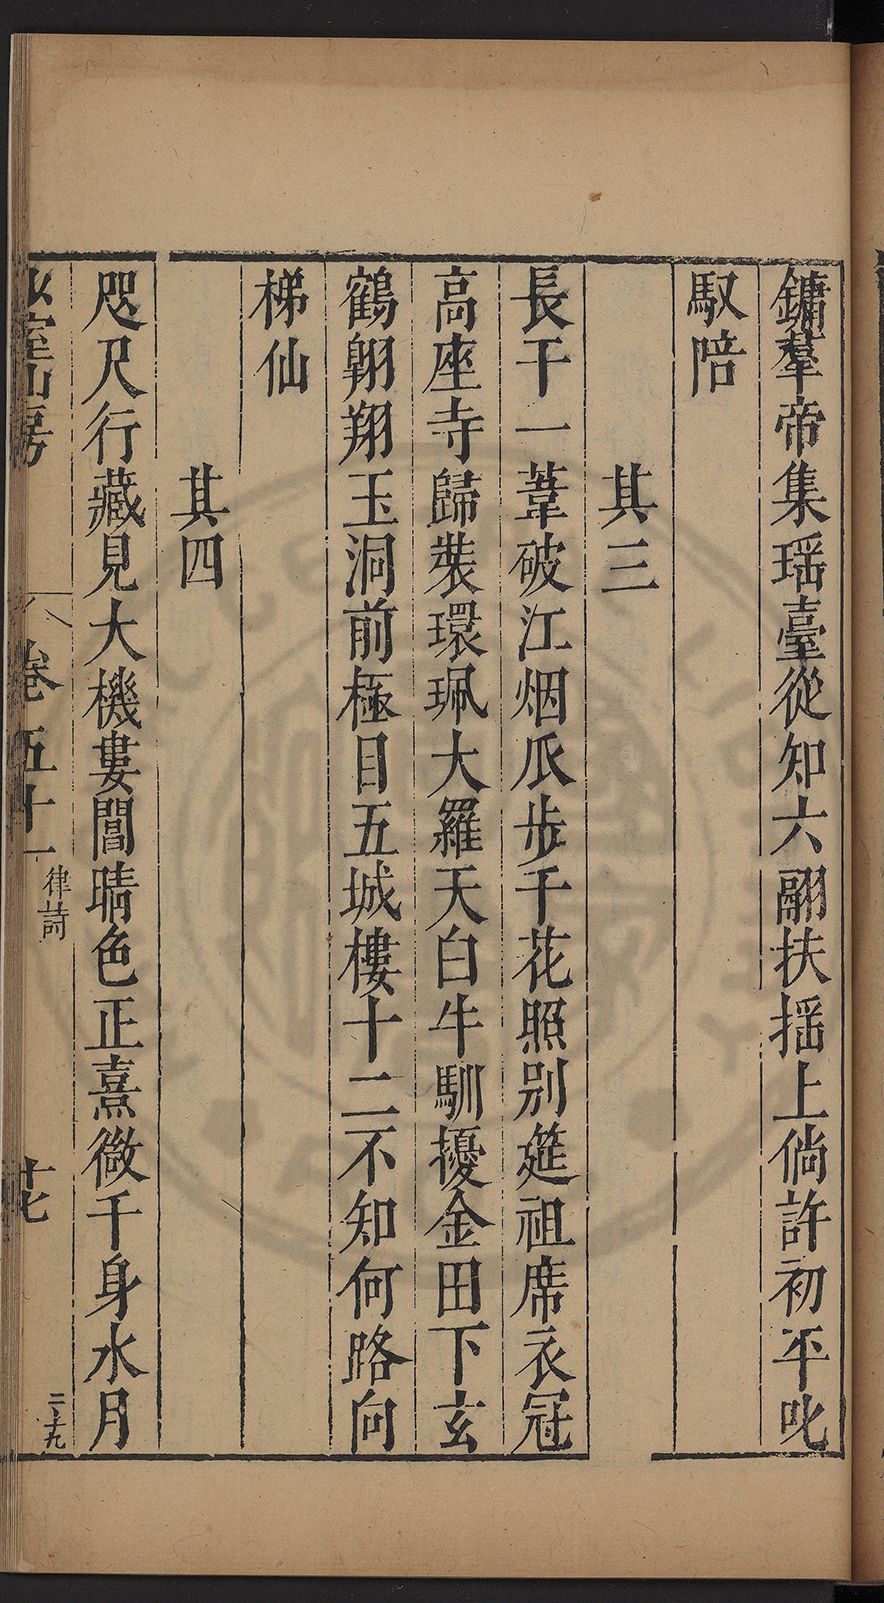 鏞羣帝集瑶臺從知六翮扶揺上倘許初平叱
馭陪
其三
長干一葦破江烟爪歩千花照别筵祖席衣冠
高座寺歸裝環珮大羅天白牛馴擾金田下玄
鶴翺翔玉洞前極目五城樓十二不知何路向
梯仙
其四
咫尺行藏見大機婁閶晴色正熹微千身水月
少室山房
卷五十一
律詩
十七
二卞九